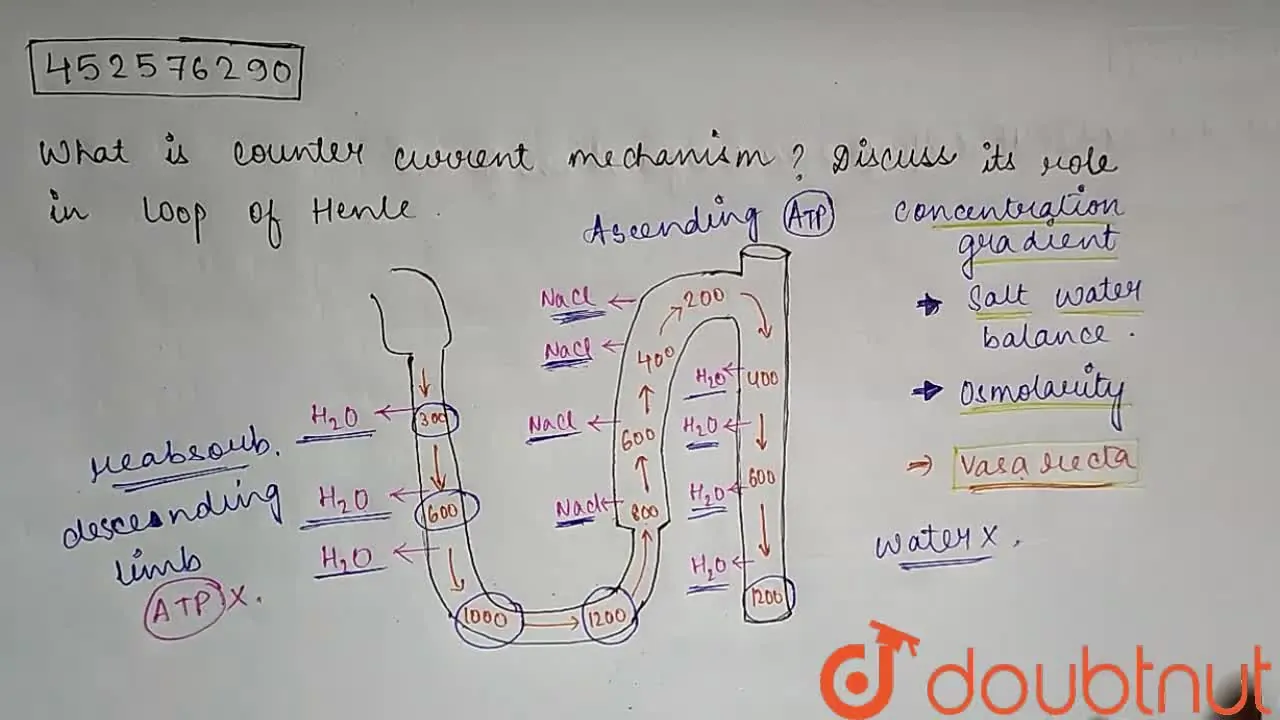 452576290
What is counter current mechanism? Discuss its role
in loop of Henle.
Ascending ATP
concentration
gradient
→ Salt water
balance.
→ Osmolarity
→ Vasa recta
water x.
reabsorb.
descending
limb
ATP x.
H₂O ← 300
H₂O ← 600
H₂O ←
1000 → 1200
NaCl ← 200
NaCl ← 400
NaCl ← 600
NaCl ← 800
H₂O ← 400
H₂O ←
H₂O ← 600
H₂O ←
1200
doubtnut